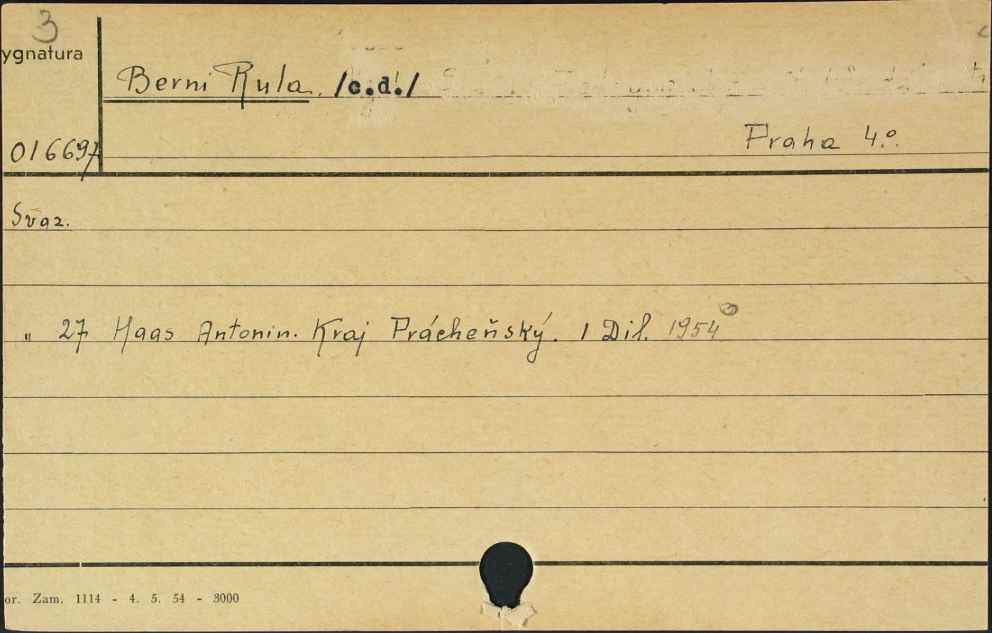 3
ygnatura
Berni Rula. /c.d./
016697
Praha 4.º
Svaz.
„ 27 Haas Antonin. Kraj Prácheňský. 1 Dil. 1954
or. Zam. 1114 - 4. 5. 54 - 3000